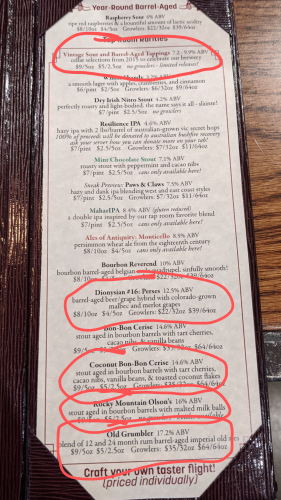 Year-Round Barrel-Aged
Raspberry Sour 6% ABV
ripe red raspberries & a bountiful amount of lactic acidity
$8/10oz $4/5oz Growlers: $22/32oz $39/64oz
Rarities
Vintage Sour and Barrel-Aged Tappings 7.2 - 9.9% ABV
cellar selections from 2015 to celebrate our brewery
$9/5oz $5/2.5oz no growlers - limited release!
a smooth lager with apples, cranberries, and cinnamon
$6/pint $2/5oz Growlers: $6/32oz $9/64oz
Dry Irish Nitro Stout 4.2% ABV
perfectly roasty and light-bodied, the name says it all - slainte!
$7/pint $2.5/5oz no growlers
Resilience IPA 4.6% ABV
hazy ipa with 2 lbs/barrel of australian-grown vic secret hops
100% of proceeds will be donated to australian bushfire recovery
ask your server how you can donate more on your tab!
$7/pint $2.5/5oz Growlers: $7/32oz $11/64oz
Mint Chocolate Stout 7.1% ABV
roasty stout with peppermint and cacao nibs
$7/pint $2.5/5oz cans only available here!
Sneak Preview: Paws & Claws 7.5% ABV
hazy and dank ipa blending west and east coast styles
$7/pint $2.5/5oz Growlers: $7/32oz $11/64oz
MaharIPA 8.4% ABV (gluten reduced)
a double ipa inspired by our tap room favorite blend
$7/pint $2.5/5oz cans only available here!
Ales of Antiquity: Monticello 8.8% ABV
persimmon wheat ale from the eighteenth century
$8/10oz $4/5oz cans only available here!
Bourbon Reverend 10% ABV
bourbon barrel-aged belgian quadrupel. sinfully smooth!
$8/10oz $22/32oz $39/64oz
Dionysian #16: Perses 12.5% ABV
barrel-aged beer/grape hybrid with colorado-grown
malbec and merlot grapes
$8/10oz $4/5oz Growlers: $22/32oz $39/64oz
Bon-Bon Cerise 14.6% ABV
stout aged in bourbon barrels with tart cherries,
cacao nibs, & vanilla beans
$9/5oz Growlers: $35/32oz $64/64oz
Coconut Bon-Bon Cerise 14.6% ABV
stout aged in bourbon barrels with tart cherries,
cacao nibs, vanilla beans, & toasted coconut flakes
$9/5oz $5/2.5oz Growlers: $35/32oz $64/64oz
Rocky Mountain Olson's 16% ABV
stout aged in bourbon barrels with malted milk balls
$5/2.5oz $64/64oz
Old Grumbler 17.2% ABV
blend of 12 and 24 month rum barrel-aged imperial old ales
$9/5oz $5/2.5oz Growlers: $35/32oz $64/64oz
Craft your own taster flight!
(priced individually)